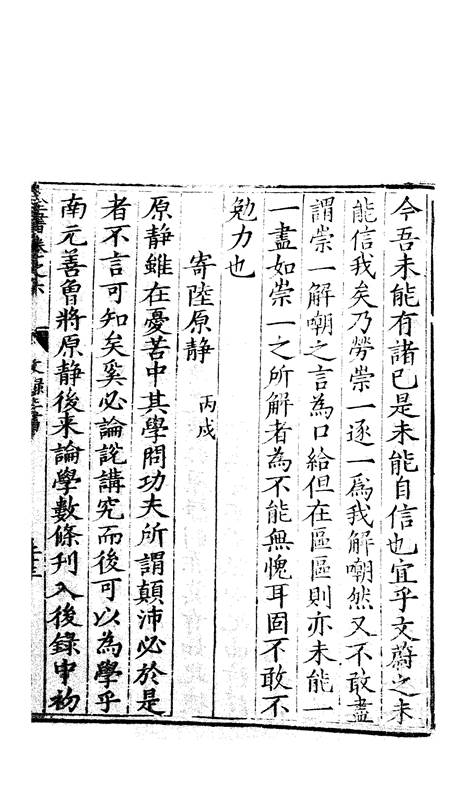 今吾未能有諸已是未能自信也宜乎文蔚之未
能信我矣乃勞崇一逐一爲我解嘲然又不敢盡
謂崇一解嘲之言為口給但在區區則亦未能一
一盡如崇一之所解者為不能無愧耳固不敢不
勉力也
寄陸原静 丙戌
原静雖在憂苦中其學問功夫所謂顛沛必於是
者不言可知矣奚必論說講究而後可以為學乎
南元善曾將原静後来論學數條刊入後錄中初